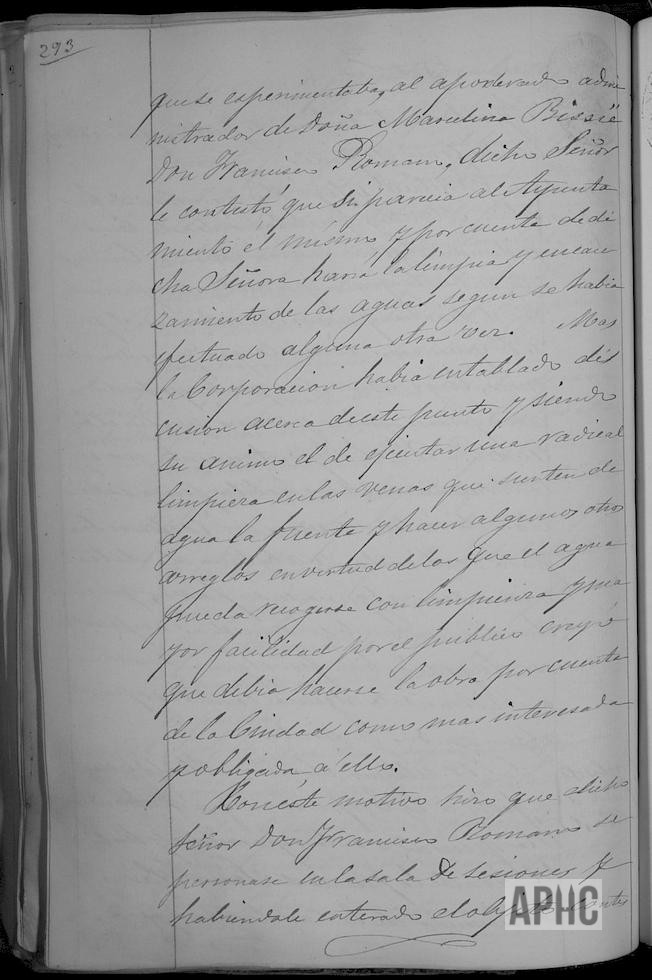 293
que se esperimentaba, al apoderado admi
nistrador de Doña Marcelina
Don Francisco Romano, dicho Señor
le contestó que si parecia al Ayunta
miento él mismo y por cuenta de di
cha Señora haria la limpia y encau
zamiento de las aguas segun se habia
efectuado alguna otra vez. Mas
la Corporacion habia entablado dis
cusion acerca de este punto y siendo
su animo el de ejecutar una radical
limpieza en las venas que surten de
agua la fuente y hacer algunos otros
arreglos en virtud de los que el agua
pueda recogerse con limpieza y ma
yor facilidad por el publico creyó
que debia hacerse la obra por cuenta
de la Ciudad como mas interesada
y obligada á ello.
Con éste motivo hizo que dicho
Señor Don Francisco Romano se
personase en la sala de sesiones y
habiendole enterado el objeto contes
APHC